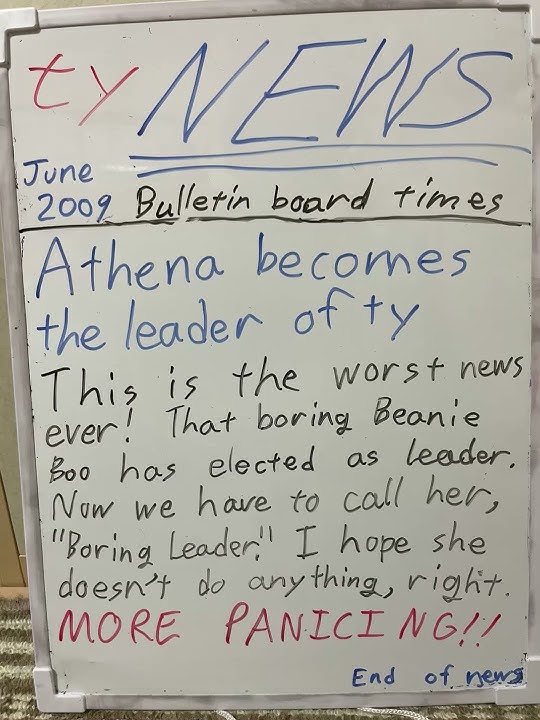 ty NEWS
June
2009 Bulletin board times
Athena becomes
the leader of ty
This is the worst news
ever! That boring Beanie
Boo has elected as leader.
Now we have to call her,
"Boring Leader." I hope she
doesn't do anything, right.
MORE PANICING!!
End of news